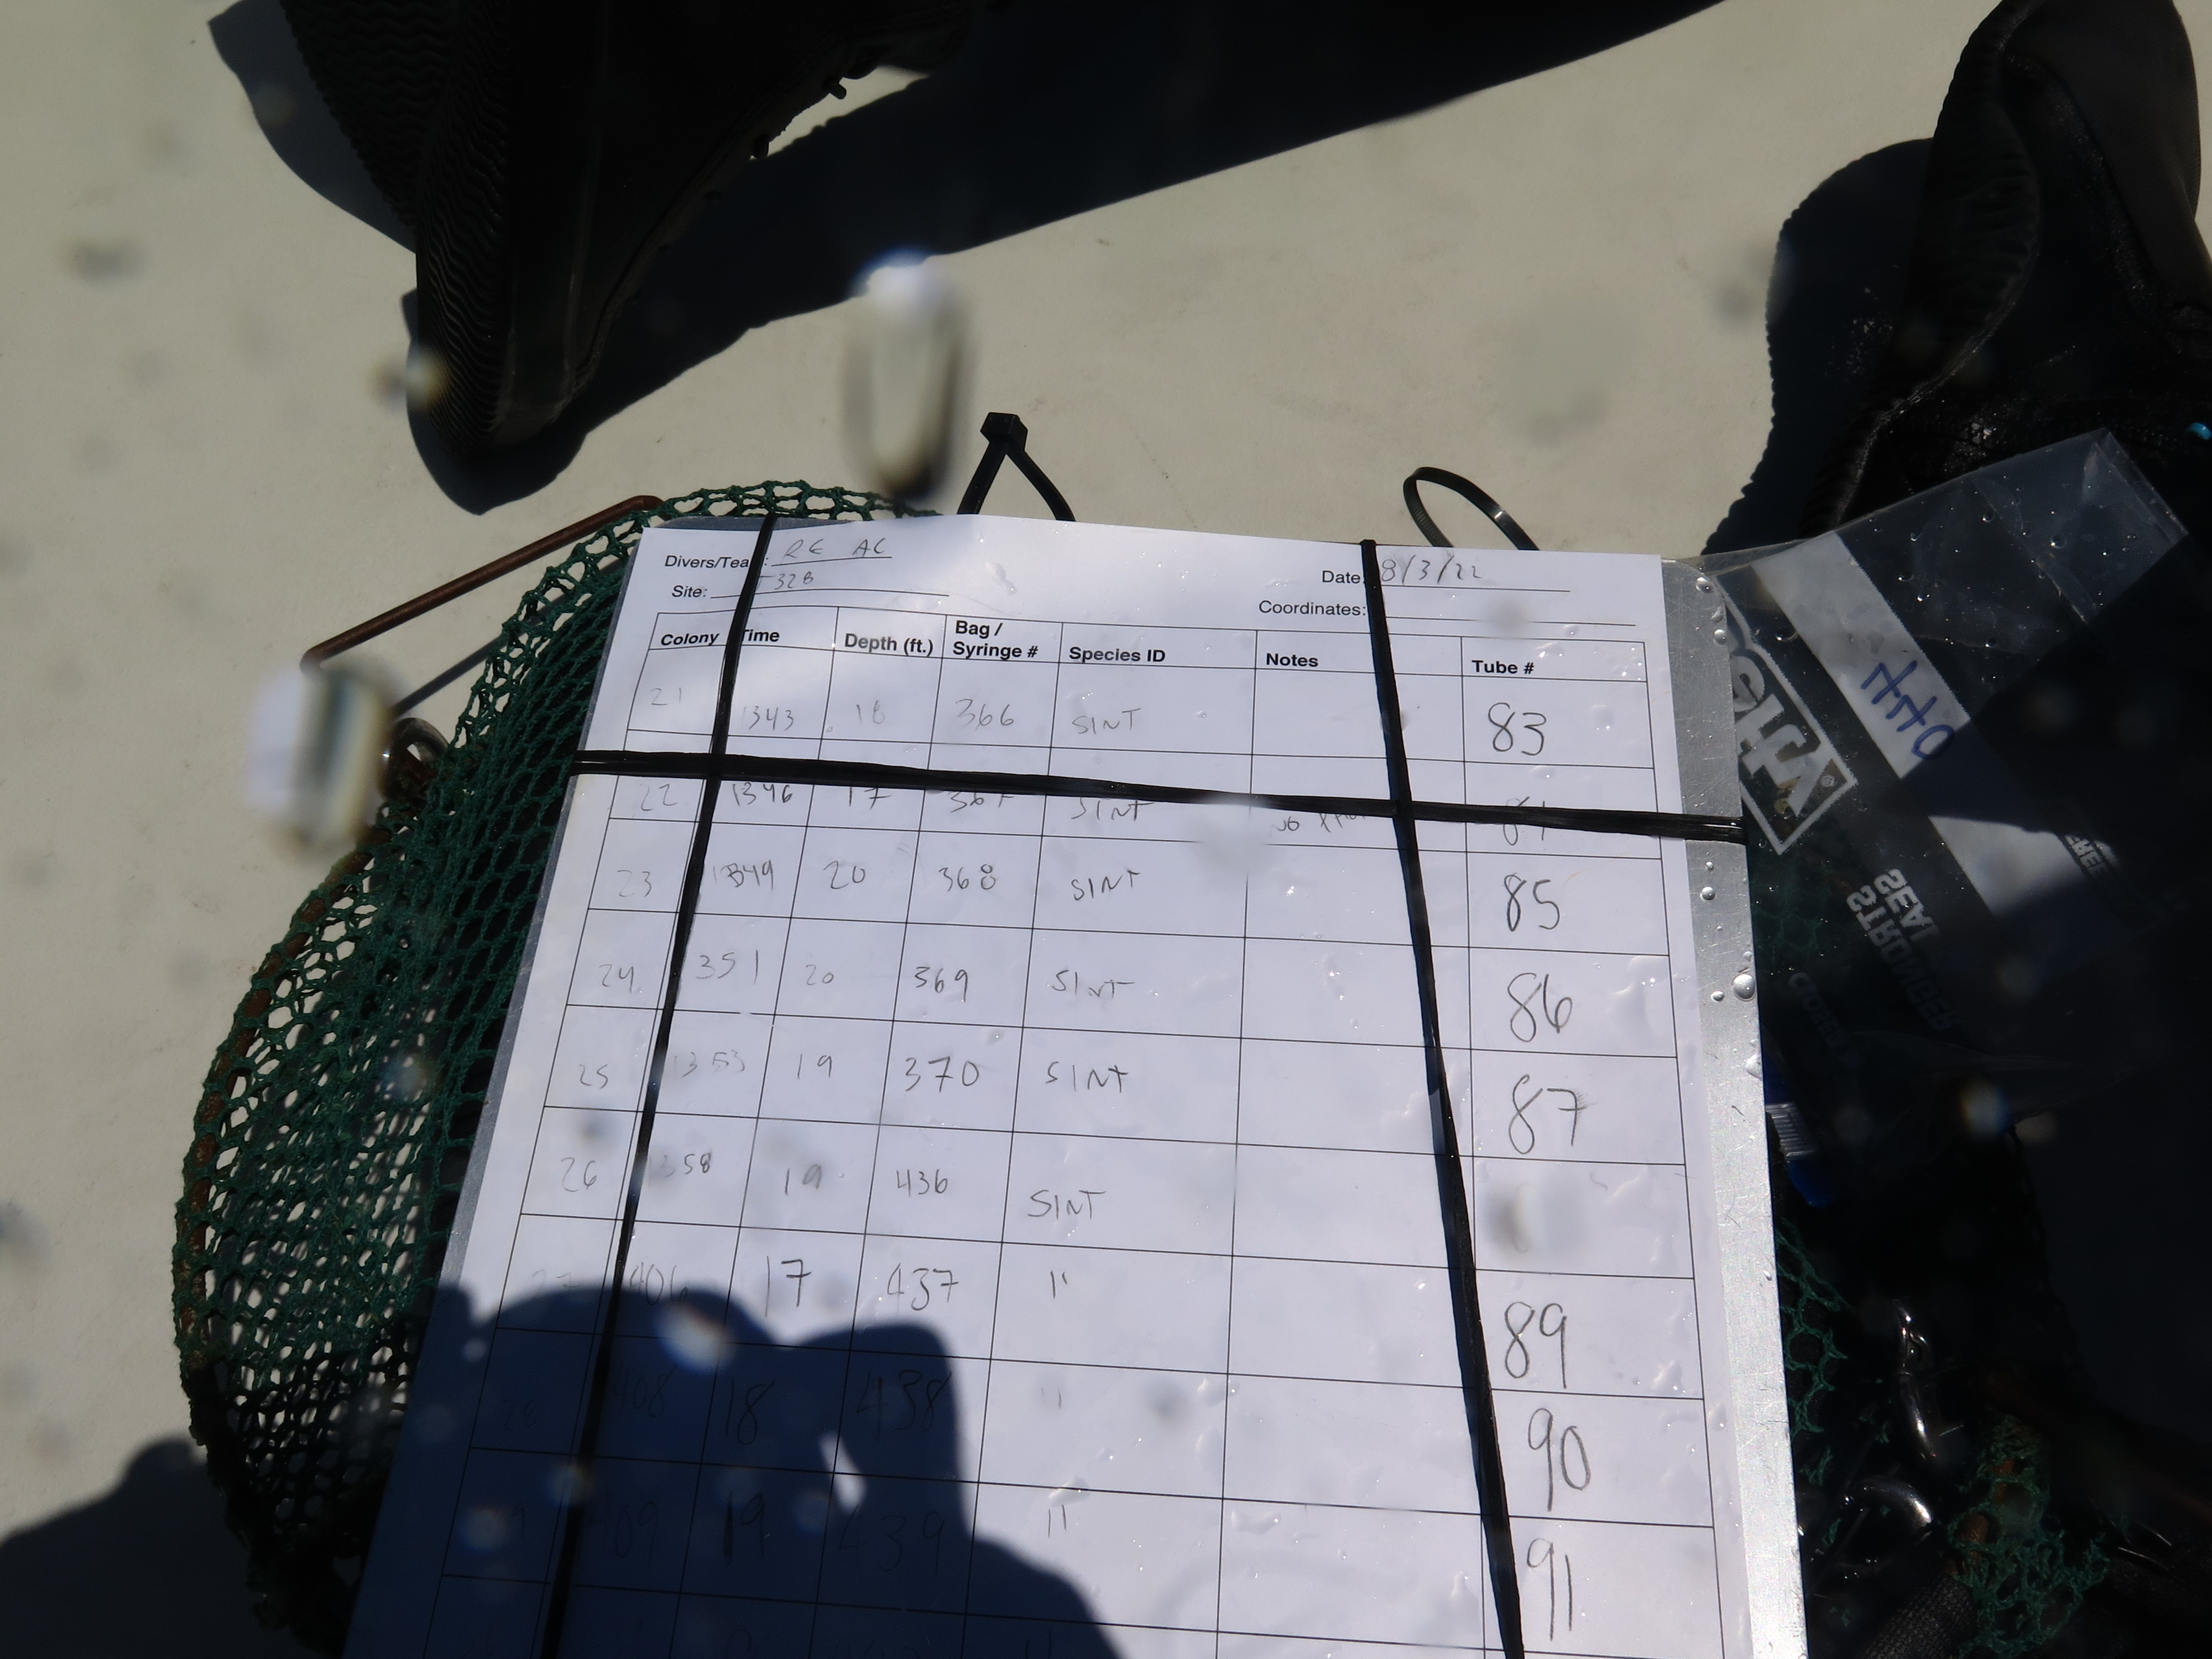 Divers/Tea : RE AC
Date: 8/3/22
Site: T32B
Coordinates:
Colony Time Depth (ft.) Bag / Syringe # Species ID Notes Tube #
21 1343 18 366 SINT 83
22 1346 17 367 SINT NO
23 1349 20 368 SINT 85
24 1351 20 369 SINT 86
25 1353 19 370 SINT 87
26 1358 19 436 SINT
27 406 17 437 " 89
28 408 18 438 " 90
409 19 439 " 91
STRONGER
SEAL